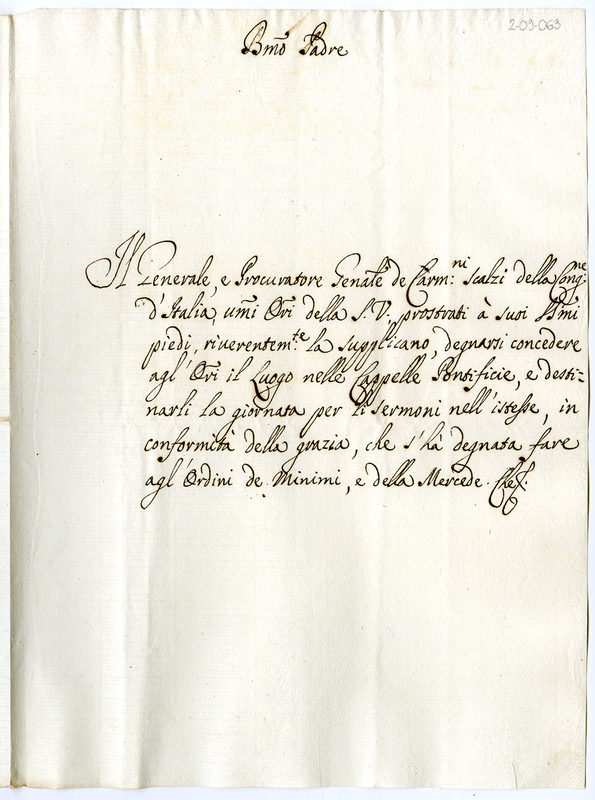 2-09-063
Bmõ Padre
Il Generale, e Procuratore Genãle de Carm:ni Scalzi della Cong:ne
d'Italia, umĩ Orĩ della S. V. prostrati à suoi Bmĩ
piedi, riverentem:te la supplicano, degnarsi concedere
agl'Orĩ il Luogo nelle Cappelle Pontificie, e desti=
narli la giornata per li sermoni nell'istesse, in
conformità della grazia, che s'hà degnata fare
agl'Ordini de Minimi, e della Mercede. Che